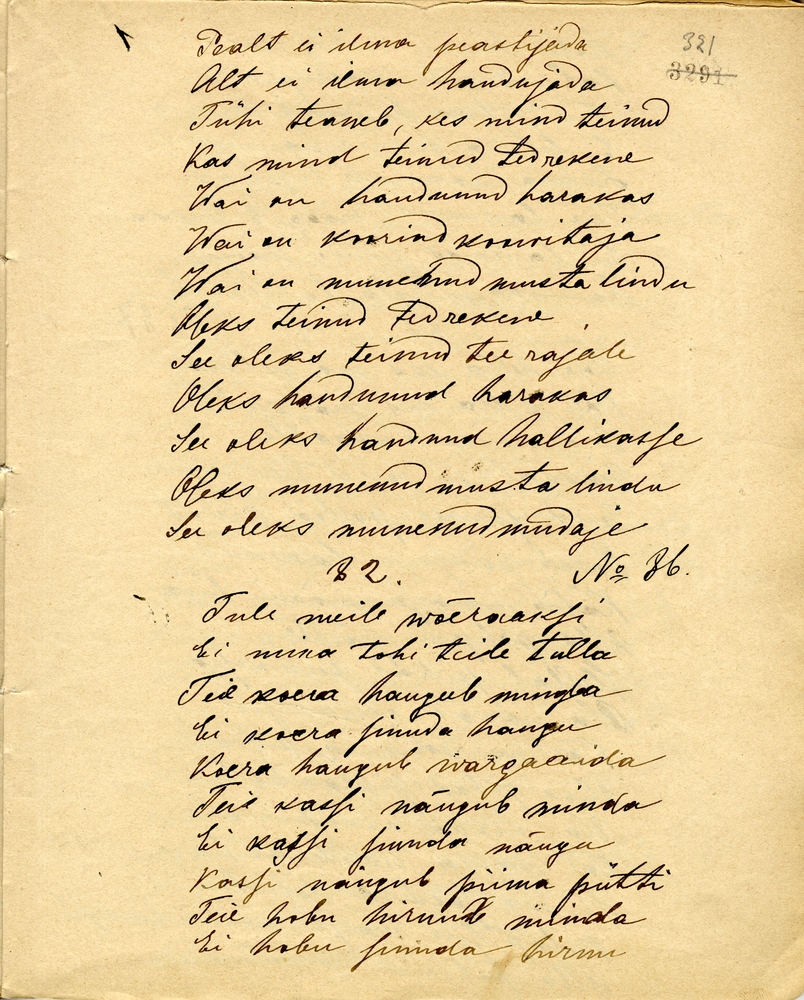 321
3291
Pealt ei ilma peastijada
Alt ei ilma haudujada
Tühi teaneb, kes mind teinud
Kas mind teinud tedrekene
Wai on haudunud harakas
Wai on koorind koowitaja
Wai on munenud musta lindu
Oleks teinud tedrekene
See oleks teinud tee rajale
Oleks haudunud harakas
See oleks haudnud hallikasse
Oleks munenud musta lindu
See oleks munenud mudaje
82. No 86.
Tule meile wõeraaksi
Ei mina tohi teile tulla
Teie koera haugub minda
Ei koera sinuda haugu
Koera haugub wargaaida
Teie kassi näugub minda
Ei kassi sinnda näugu
Kassi näugub piima pütti
Teie hobu hirnub minda
Ei hobu sinnda hirnu